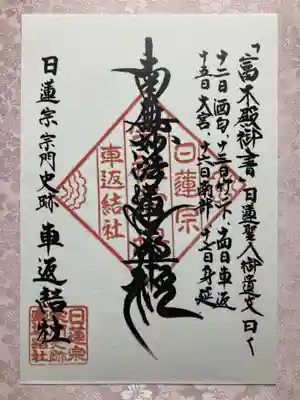 「富木殿御書 日蓮聖人御遺文曰く
十二日酒匂、十三日竹ノ下、十四日車返
十五日大宮、十六日南部、十七日身延
南無妙法蓮華経
日蓮宗
車返結社
日蓮宗宗門史跡 車返結社
日蓮宗
宗門史跡
車返結社